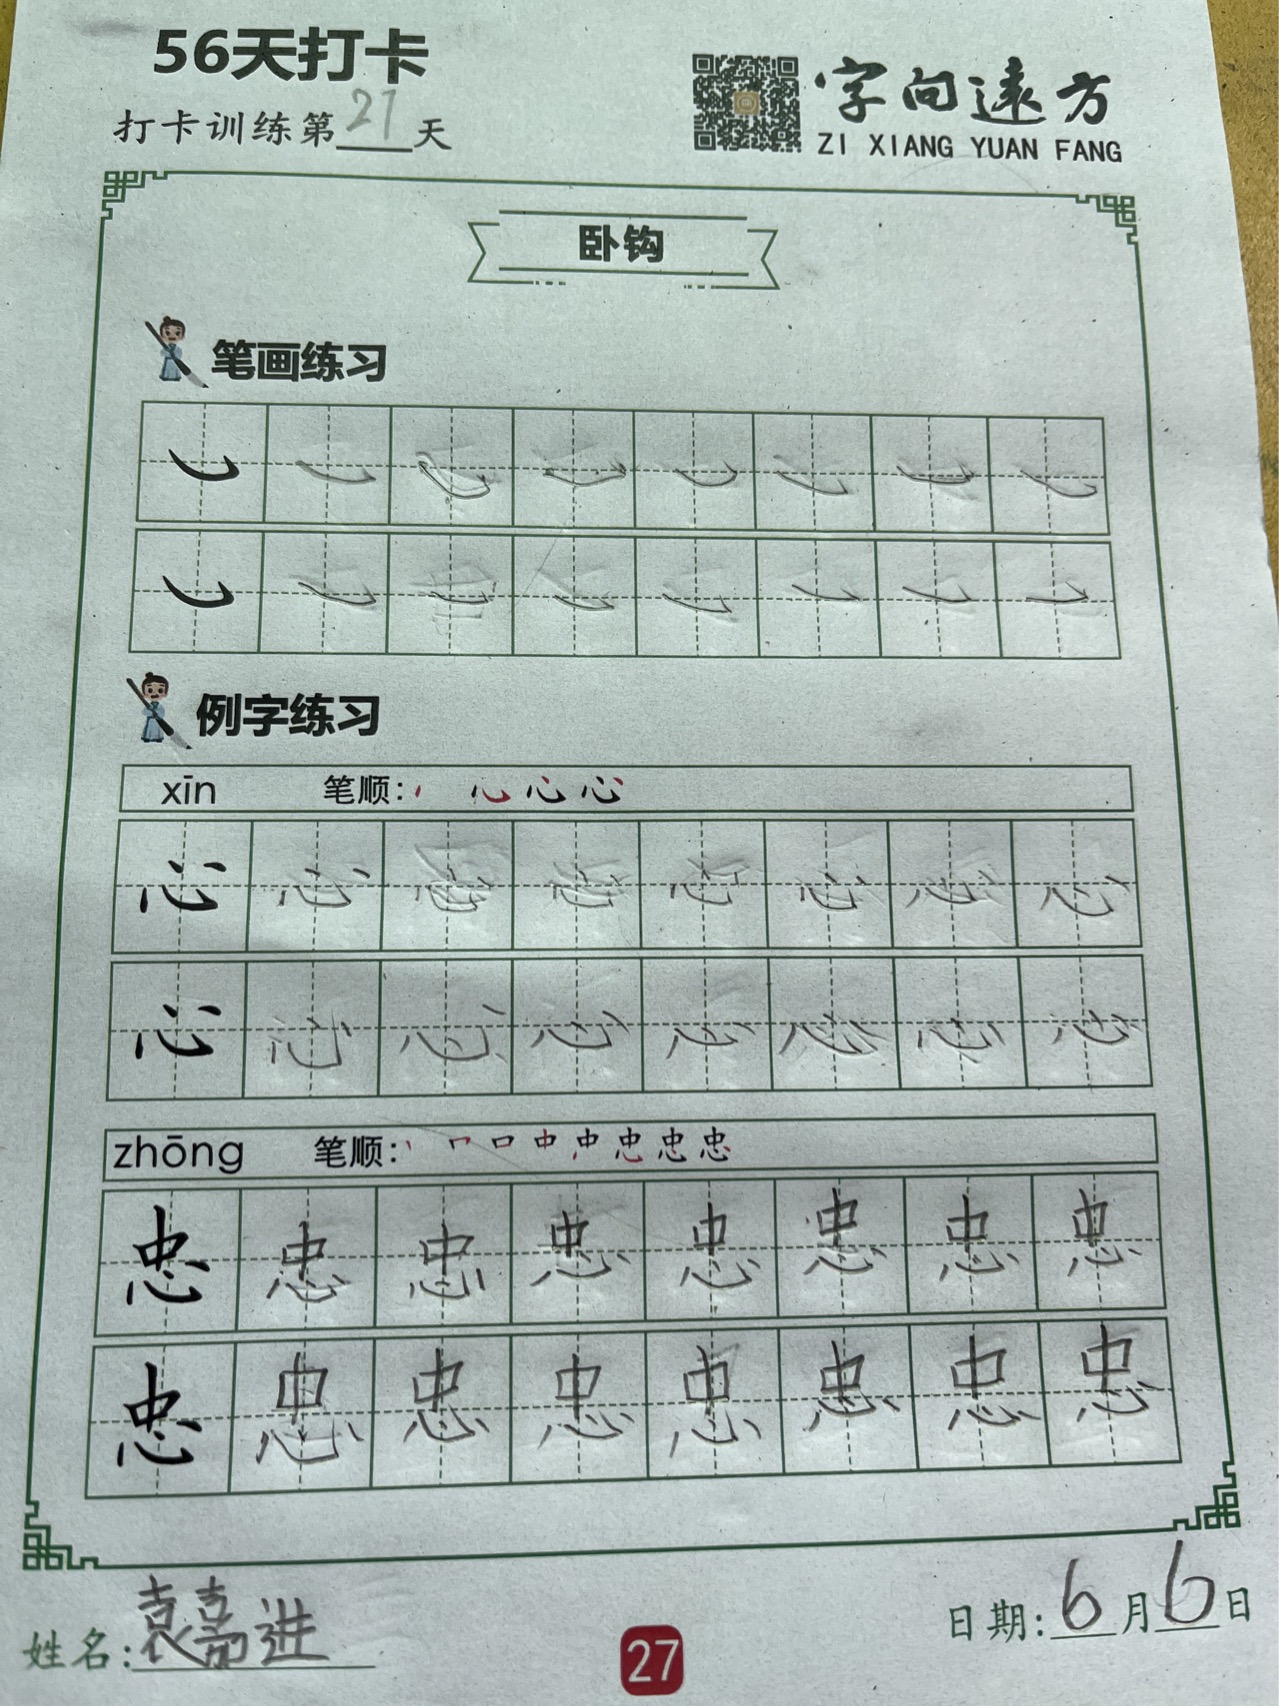 56天打卡
打卡训练第27天
字向远方
ZI XIANG YUAN FANG
卧钩
笔画练习
例字练习
xīn 笔顺:
心 心 心 心 心 心 心 心
心 心 心 心 心 心 心 心
zhōng 笔顺: 丨 口 中 忠 忠 忠
忠 忠 忠 忠 忠 忠 忠 忠
忠 忠 忠 忠 忠 忠 忠 忠
姓名:袁嘉进
27
日期:6月6日